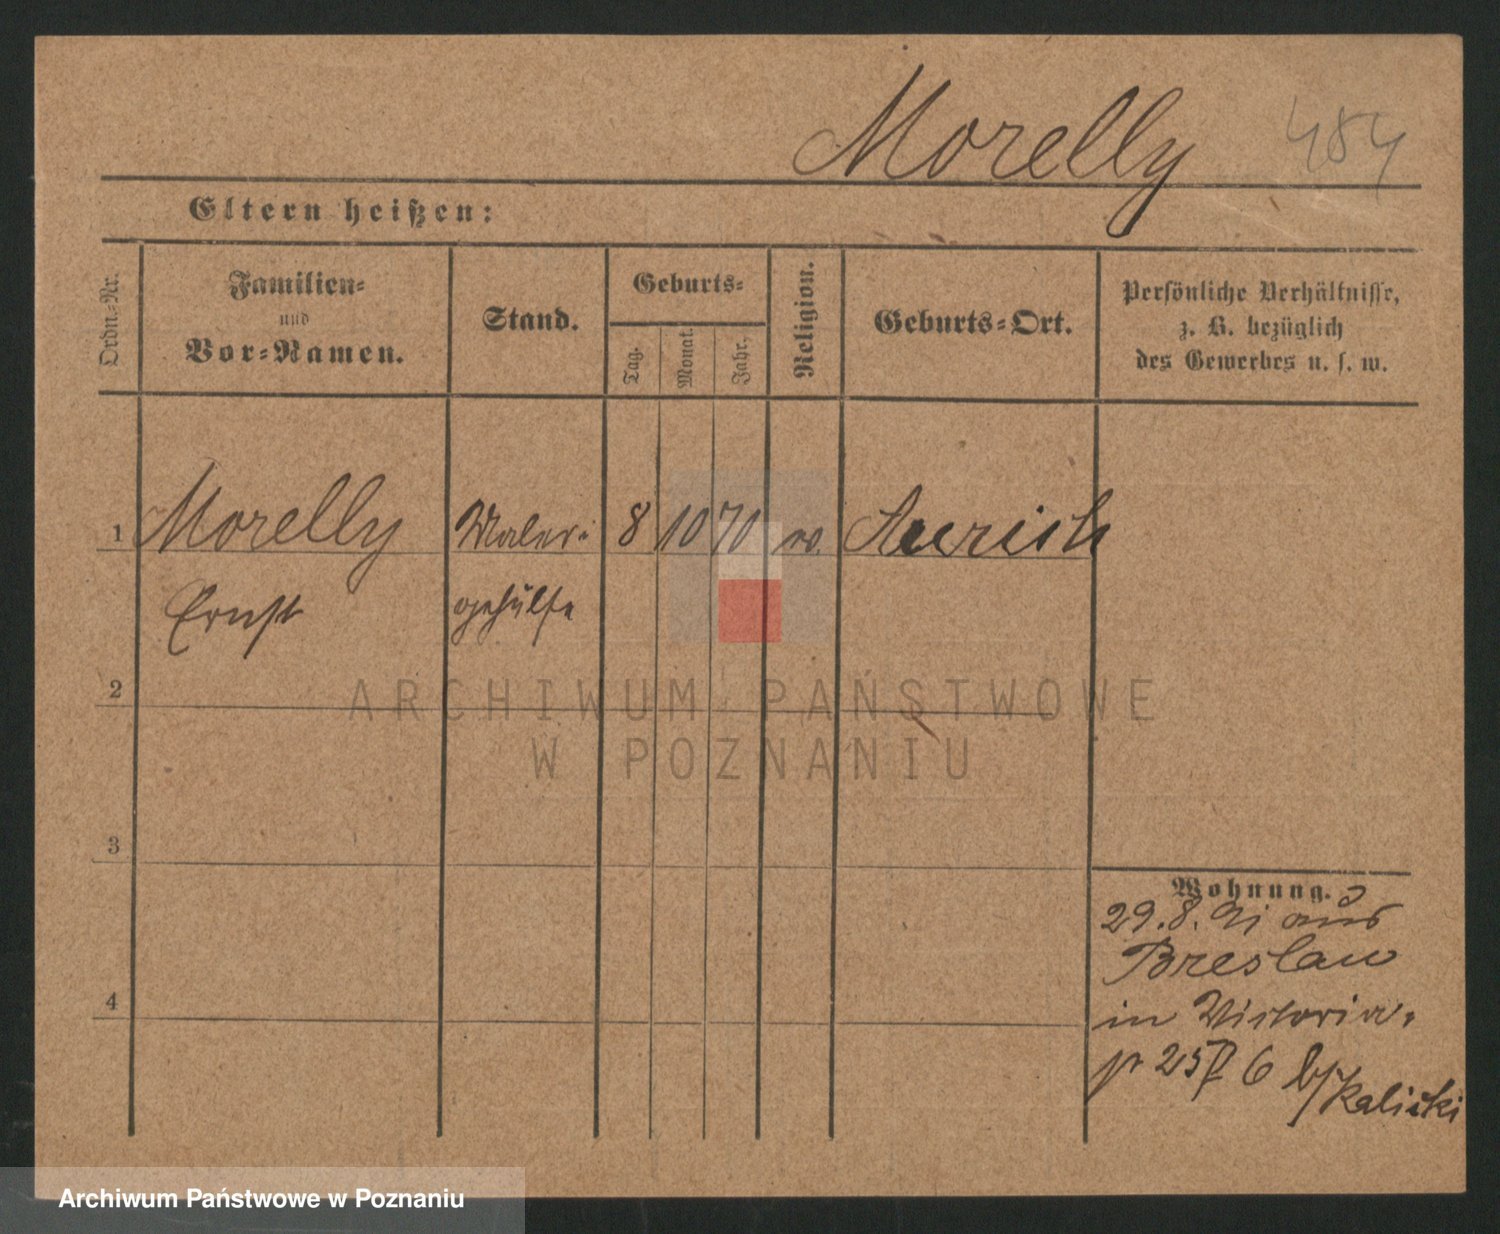 Morelly 484
Eltern heißen:
Ordn.-Nr.
Familien-
und
Vor-Namen.
Stand.
Geburts-
Tag.
Monat.
Jahr.
Religion.
Geburts-Ort.
Persönliche Verhältnisse,
z. B. bezüglich
des Gewerbes u. s. w.
1 Morelly Maler- 8 10 70 Aurich
Ernst gehülfe
2
ARCHIWUM PAŃSTWOWE
W POZNANIU
3
Wohnung.
29.8.91 aus
Breslau
4
in Victoria-
25 6 b/
Kalicki
Archiwum Państwowe w Poznaniu